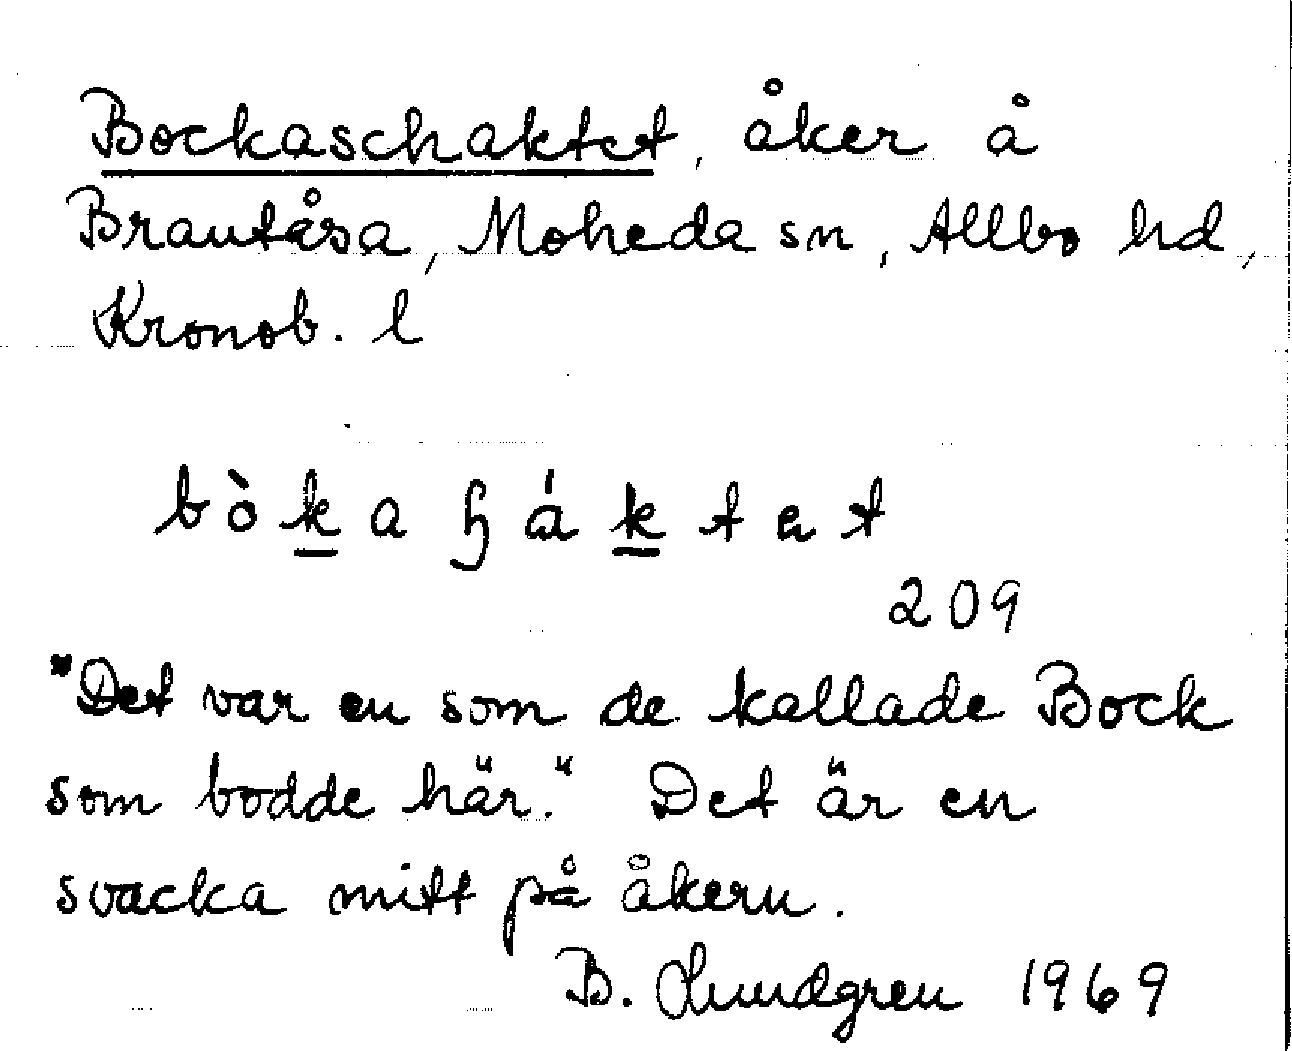 Bockaschaktet, åker å
Brantåsa, Moheda sn, Allbo hd,
Kronob. l
bòka ɧáktet
209
"Det var en som de kallade Bock
som bodde här." Det är en
svacka mitt på åkern.
B. Lundgren 1969